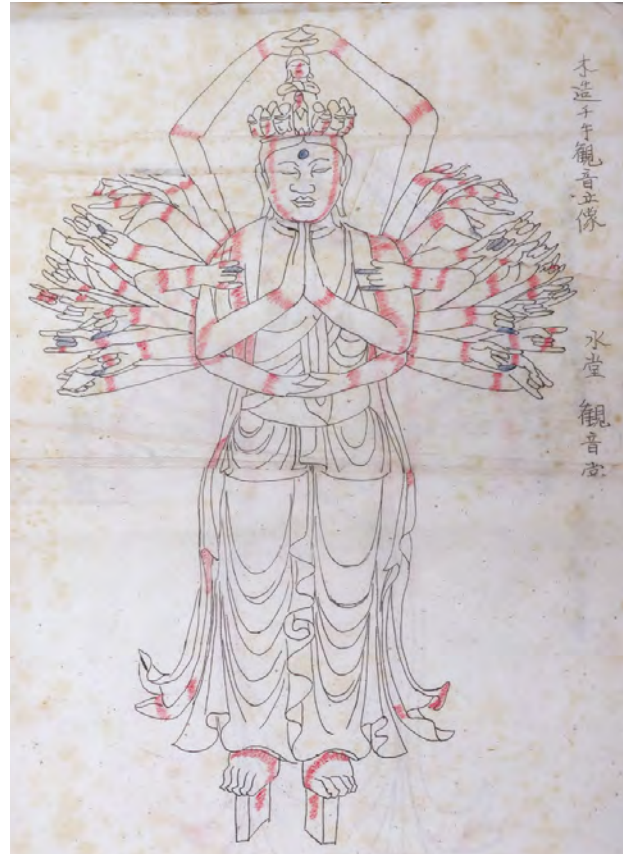 木造千手観音立像
水堂 観音堂